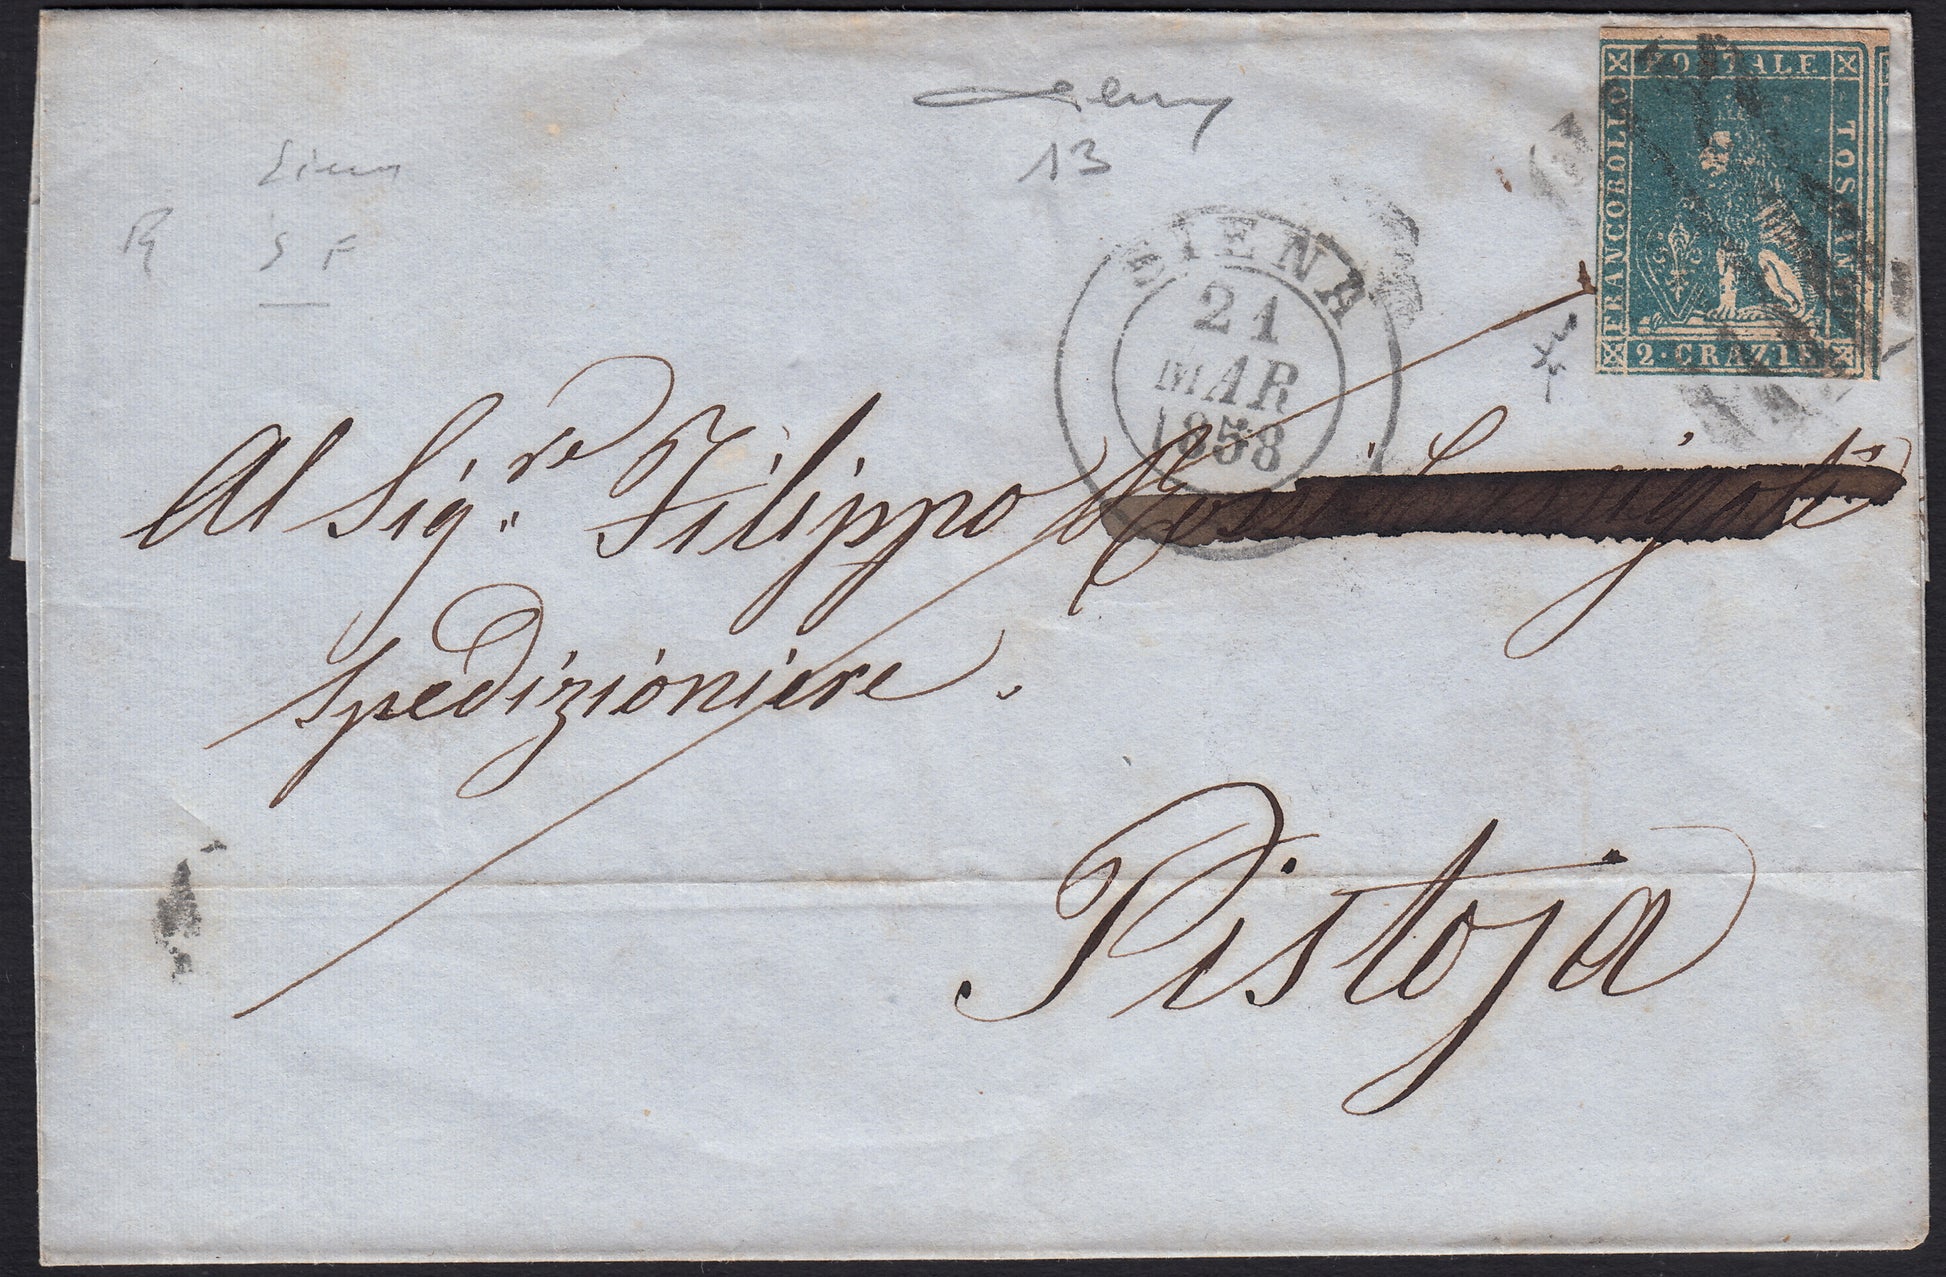 13
Siena
S F
FRANCOBOLLO POSTALE TOSCANO
2 · CRAZIE
SIENA
21
MAR
1858
Al Sig.re Filippo Rossi
spedizioniere.
Pistoja